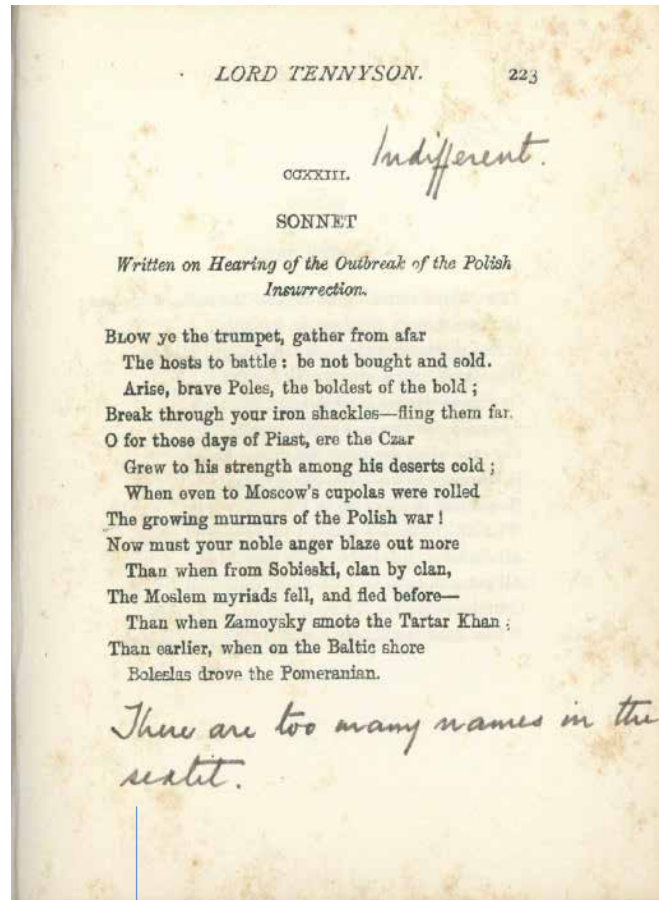 LORD TENNYSON. 223
Indifferent.
CCXXIII.
SONNET
Written on Hearing of the Outbreak of the Polish
Insurrection.
BLOW ye the trumpet, gather from afar
The hosts to battle : be not bought and sold.
Arise, brave Poles, the boldest of the bold ;
Break through your iron shackles—fling them far.
O for those days of Piast, ere the Czar
Grew to his strength among his deserts cold ;
When even to Moscow's cupolas were rolled
The growing murmurs of the Polish war !
Now must your noble anger blaze out more
Than when from Sobieski, clan by clan,
The Moslem myriads fell, and fled before—
Than when Zamoysky smote the Tartar Khan ;
Than earlier, when on the Baltic shore
Boleslas drove the Pomeranian.
There are too many names in the
sextet.